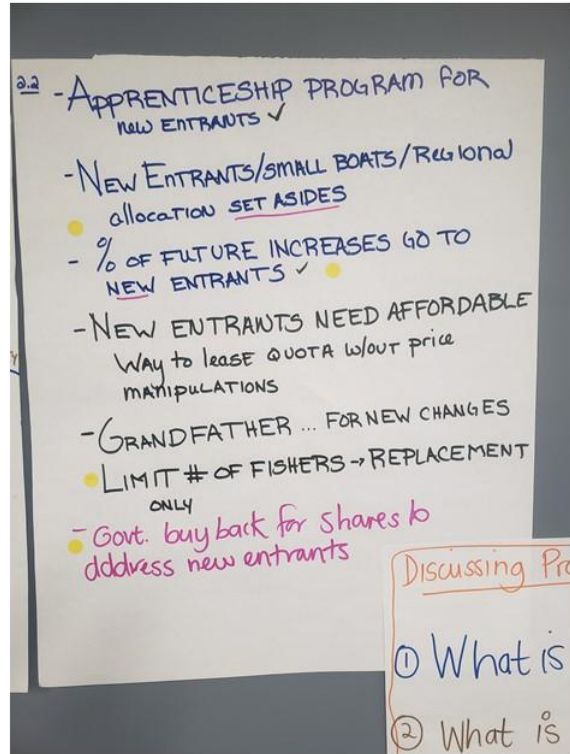 2.2 - APPRENTICESHIP PROGRAM FOR
new ENTRANTS ✓
- NEW ENTRANTS/SMALL BOATS/REGIONAL
allocation SET ASIDES
- % OF FUTURE INCREASES GO TO
NEW ENTRANTS ✓
- NEW ENTRANTS NEED AFFORDABLE
WAY to lease QUOTA W/OUT price
MANIPULATIONS
- GRANDFATHER ... FOR NEW CHANGES
LIMIT # OF FISHERS → REPLACEMENT
ONLY
- Govt. buy back for shares to
address new entrants
Discussing Pro
① What is
② What is